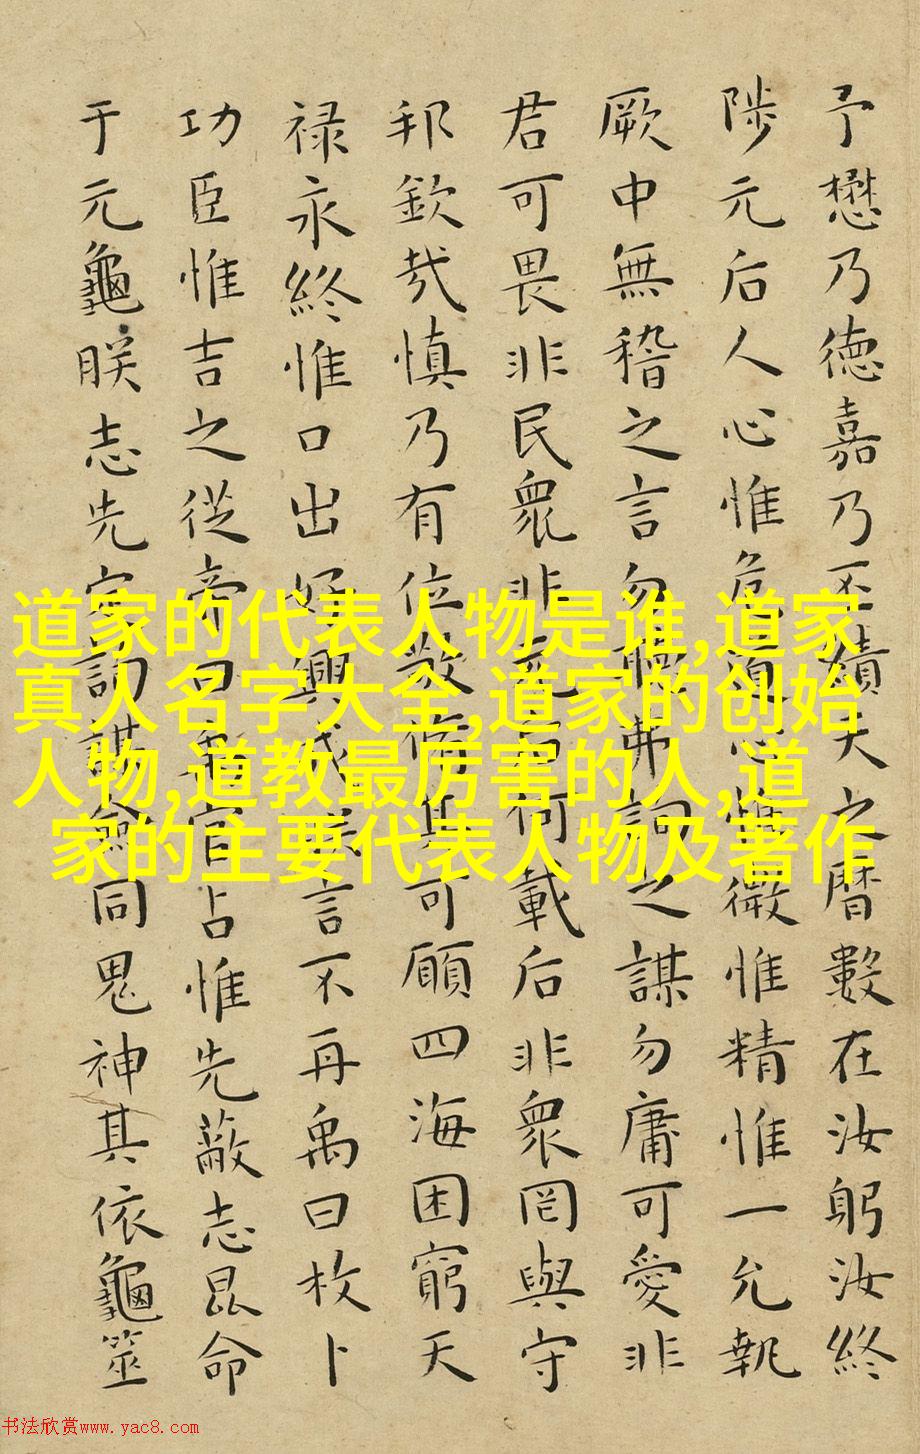 予懋乃德嘉乃丕績天之曆數在汝躬汝終
陟元后人心惟危道心惟微惟精惟一允執
厥中無稽之言勿聽弗詢之謀勿庸可愛非
君可畏非民衆非元后何載后非衆罔與守
邦欽哉慎乃有位敬脩其可願四海困窮天
禄永終惟口出好興戎朕言不再禹曰枚卜
功臣惟吉之從帝曰禹官占惟先蔽志昆命
于元龜朕志先定詢謀僉同鬼神其依龜筮
道家的代表人物是谁,道家
真人名字大全,道家的创始
人物,道教最厉害的人,道
家的主要代表人物及著作
书法欣赏www.yac8.com